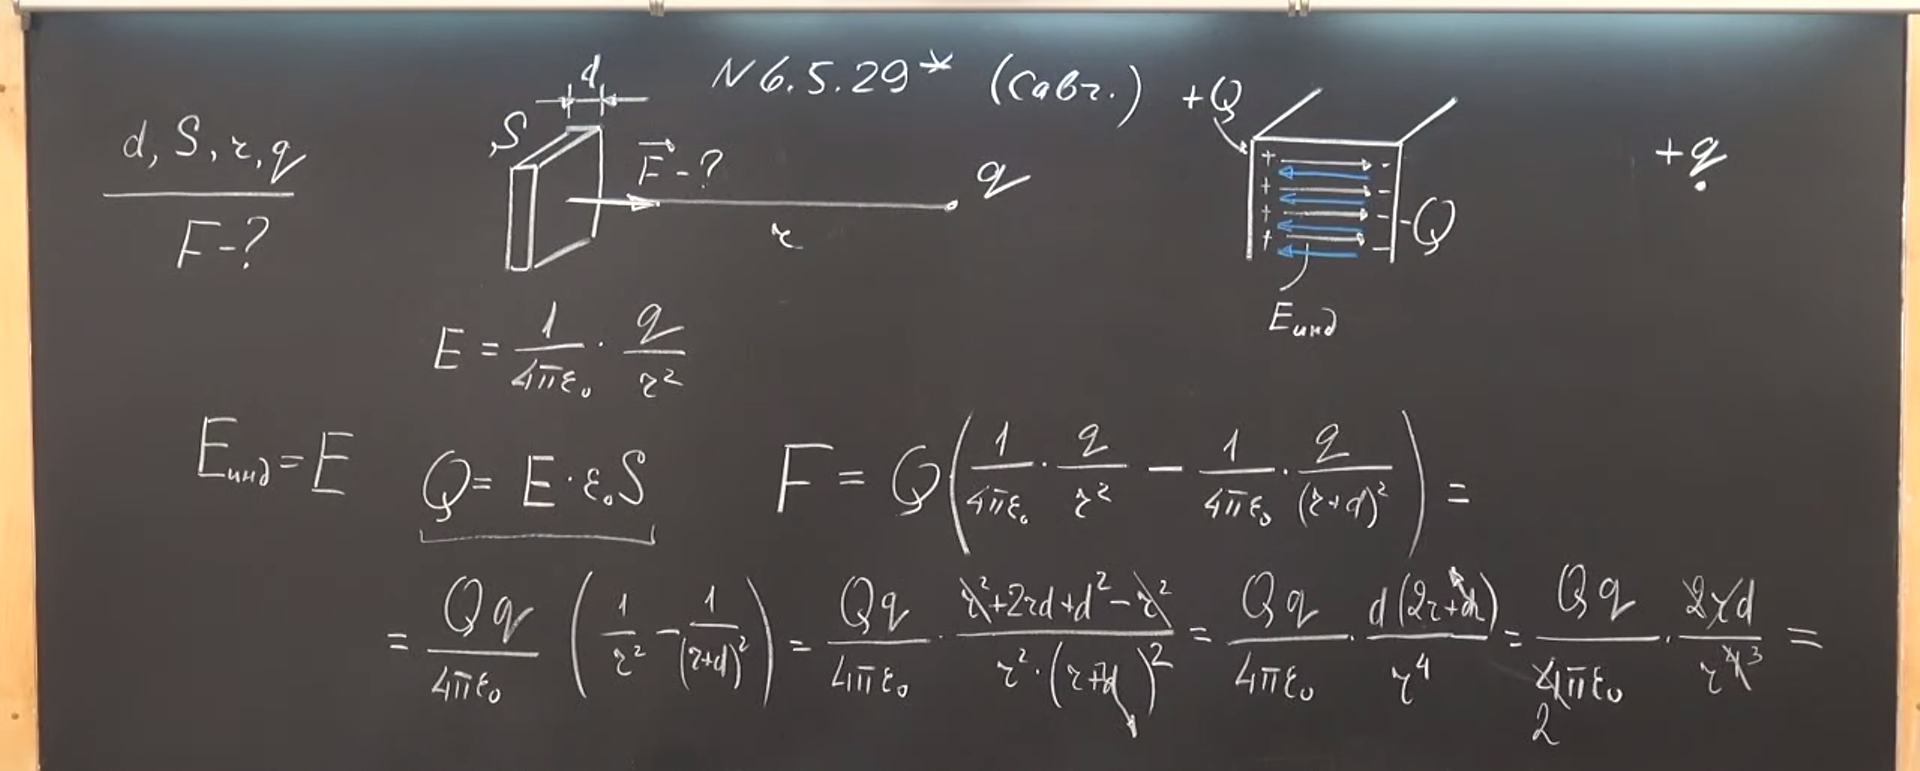 N 6.5.29* (Савч.)
d, S, r, q
F-?
d
S
F-?
r
q
+Q
+ -
+ -
+ -
+ -
-Q
Eинд
+q
E = 1/4πε₀ · q/r²
Eинд = E
Q = E·ε₀S
F = Q(1/4πε₀ · q/r² − 1/4πε₀ · q/(r+d)²) =
= Qq/4πε₀ (1/r² − 1/(r+d)²) = Qq/4πε₀ · r²+2rd+d²−r²/r²·(r+d)² = Qq/4πε₀ · d(2r+d)/r⁴ = Qq/4πε₀ · 2rd/r⁴ ³ =
2